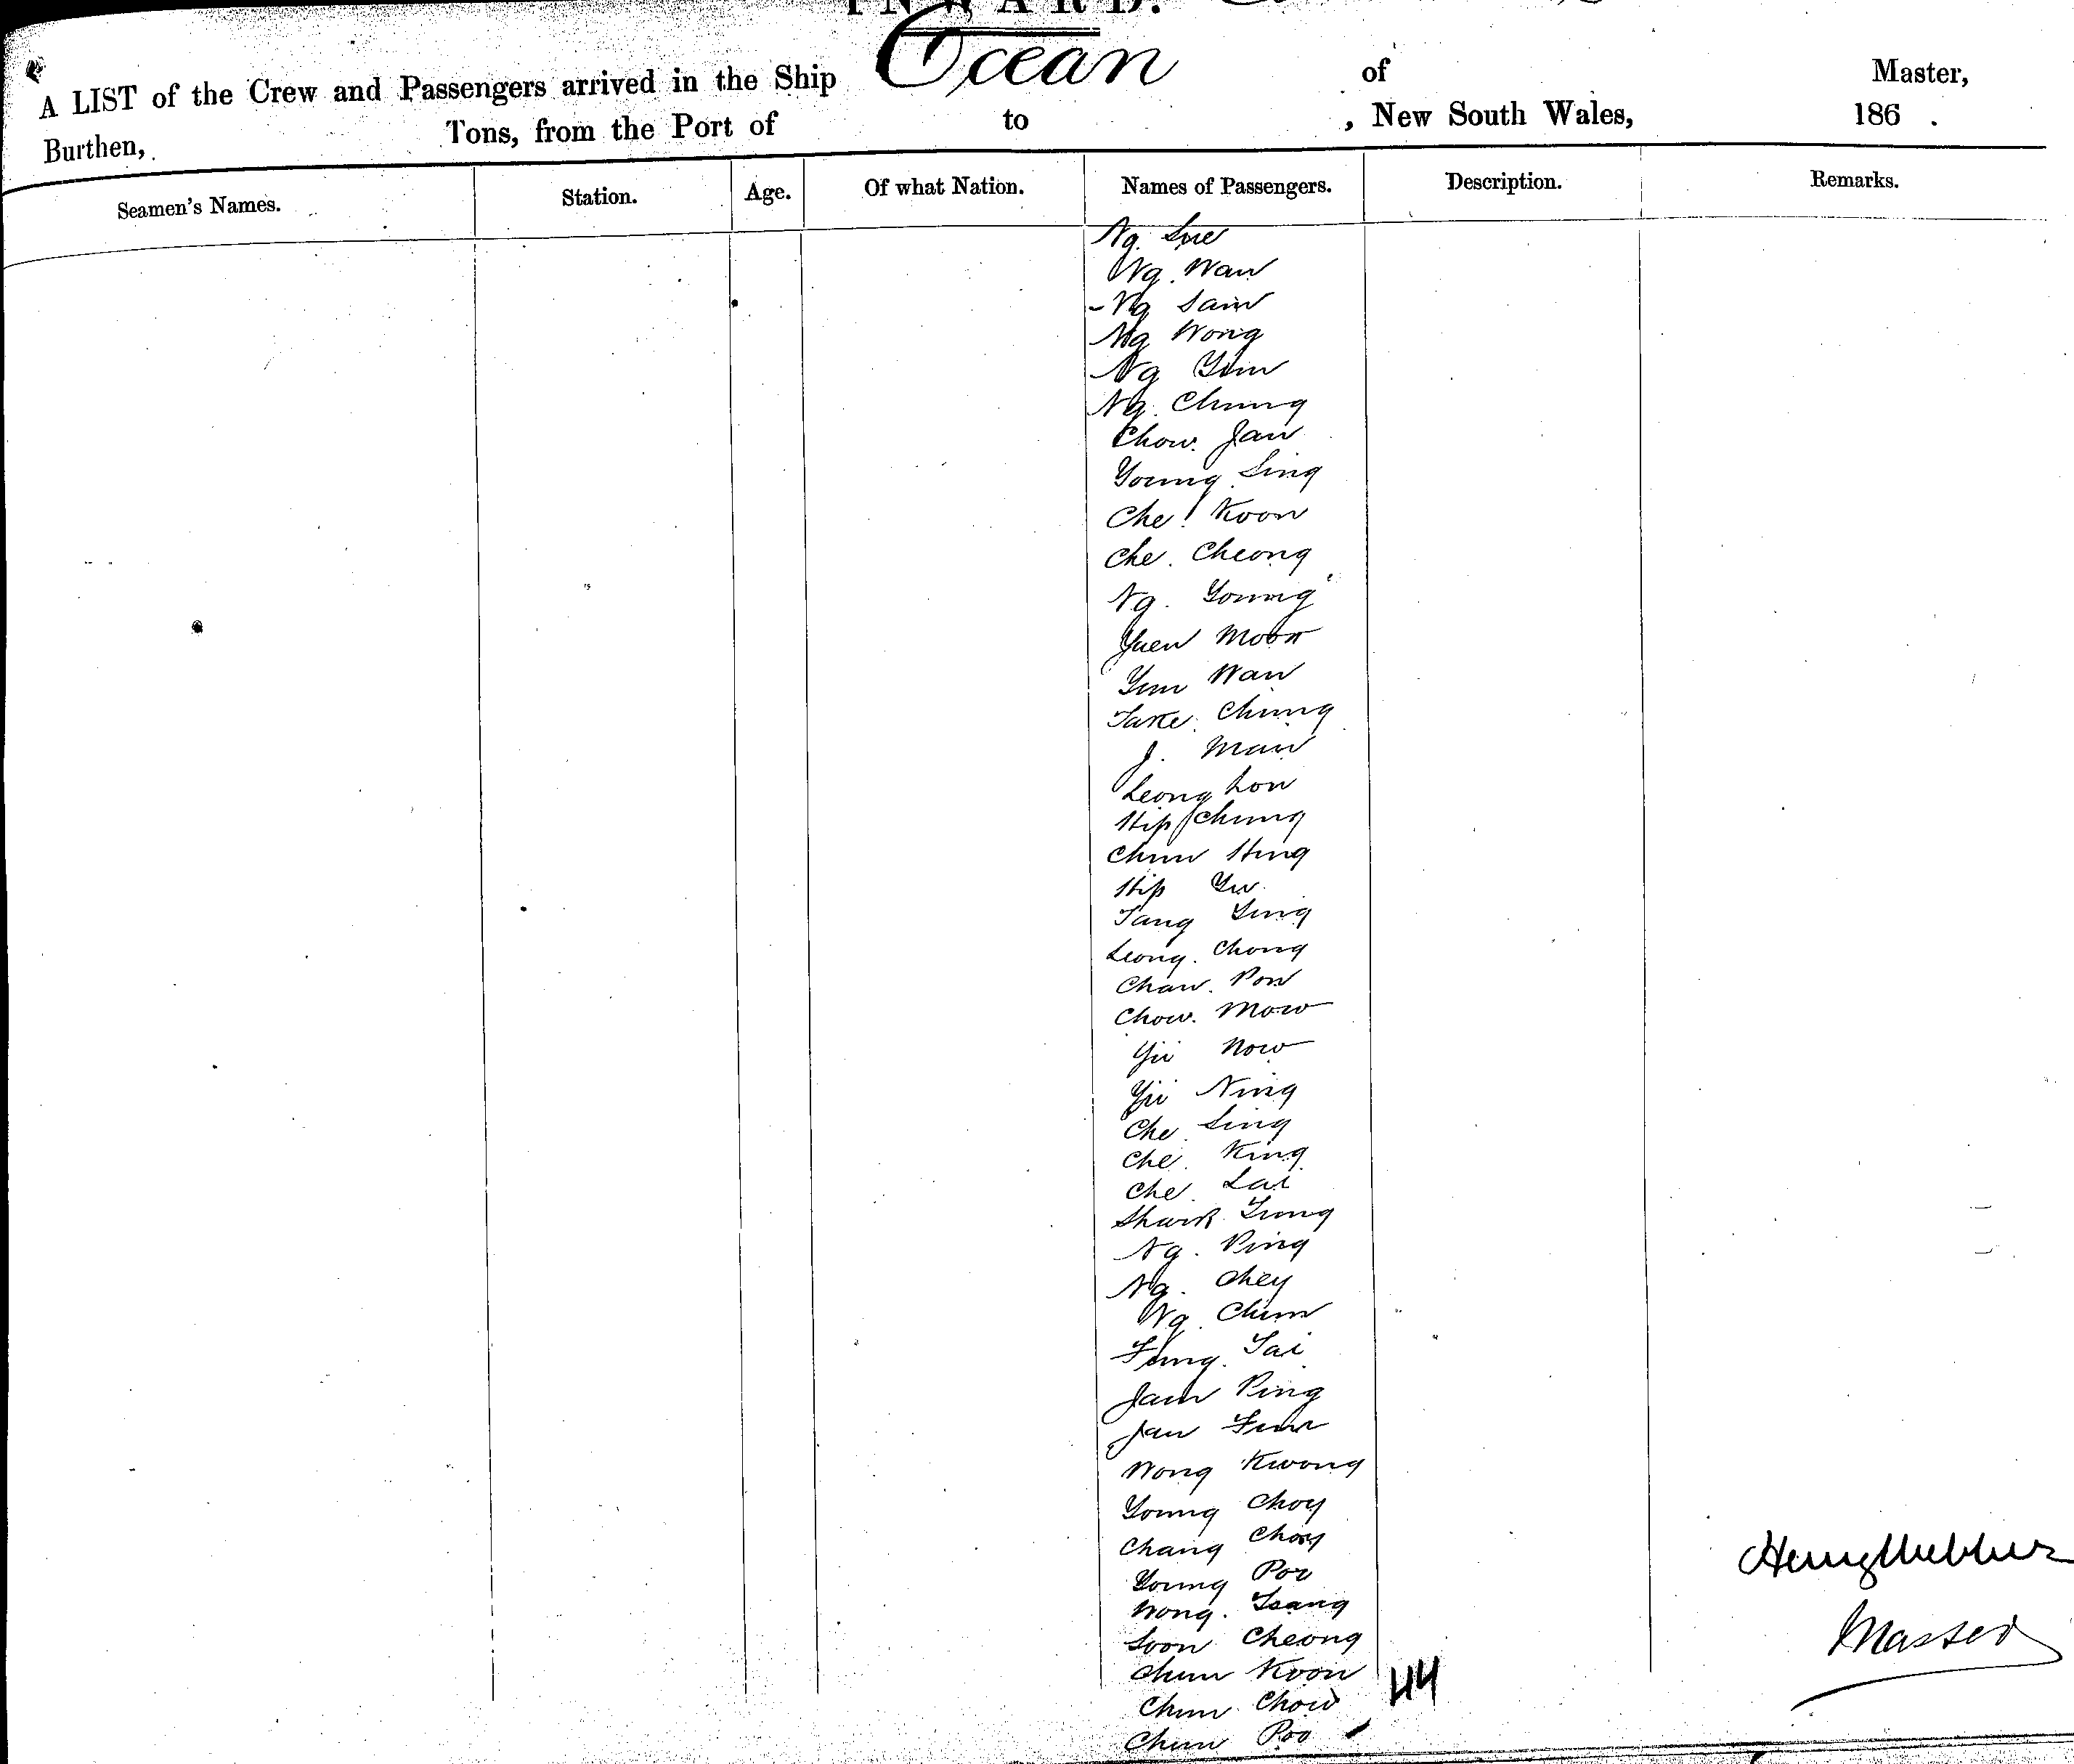 INWARD.
A LIST of the Crew and Passengers arrived in the Ship Ocean of Master,
Burthen, Tons, from the Port of to , New South Wales, 186 .
Seamen's Names. Station. Age. Of what Nation. Names of Passengers. Description. Remarks.
Ng. Sue
Ng. Wan
Ng Sam
Ng Wong
Ng Yim
Ng. Chung
Chow. Jan
Young Sing
Che Koon
Che. Cheong
Ng. Young
Yuen Moon
Yim Wan
Take Chung
J. Man
Leong Lon
Hip Chung
Chun Hing
Hip Yu
Tang Ying
Leong. Chong
Chan. Pon
Chow. Mow
Yii Now
Yii Ning
Che Sing
Che. King
Che. Lai
Shark Tung
Ng. Ping
Ng. Chey
Ng. Chun
Fung. Tai
Jam Ping
Jan Fun
Wong Kwong
Young Choy
Chang Choy
Young Poo
Wong. Tsang
Soon Cheong
Chun Koon
Chun Chow
Chun Poo
44
Henry Webber
Master